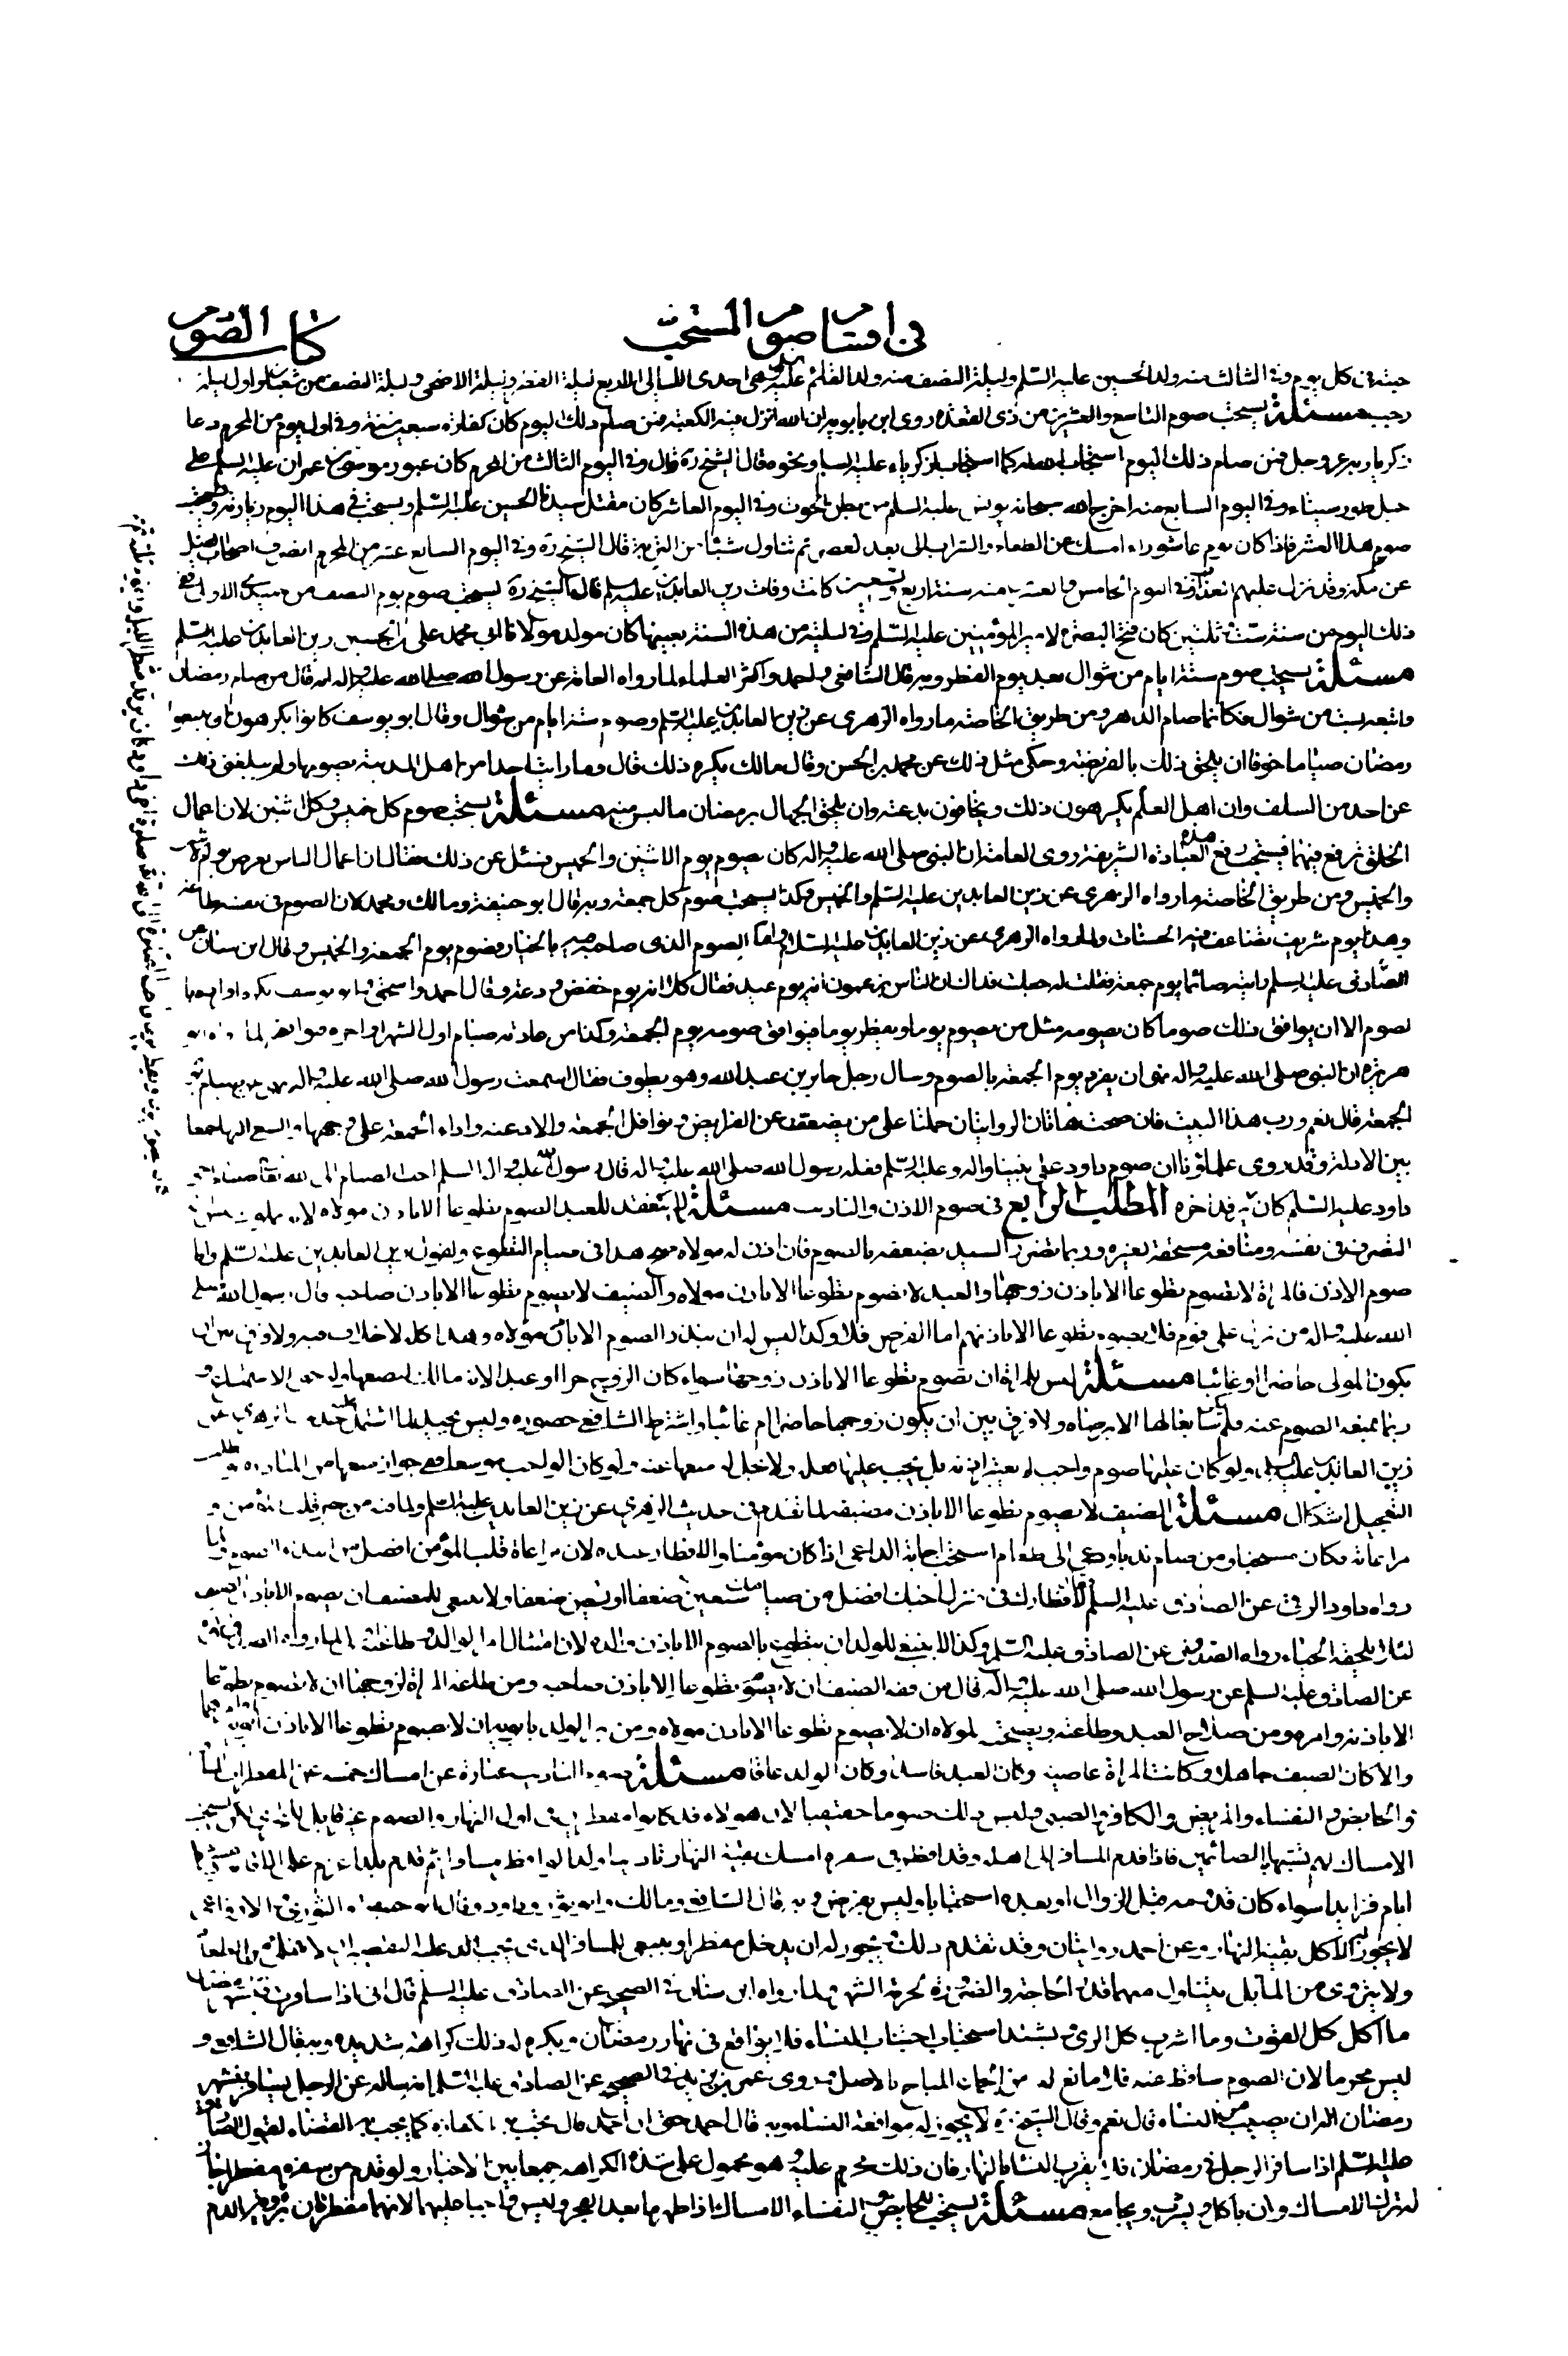 في اقسام صوم المستحب
كتاب الصوم
جنة في كل يوم وفي الثالث منه ولد الحسين عليه السلم وليلة النصف منه ولد القائم عليه وهي احدى الليالي الاربع ليلة الفطر وليلة الاضحى وليلة النصف من شعبان واول ليلة
رجب مسئلة يستحب صوم التاسع والعشرين من ذى القعدة روى ابن بابويه ان الله انزل فيه الكعبة فمن صام ذلك اليوم كان كفارة سبعين سنة وفي اول يوم من المحرم دعا
زكريا ربه عز وجل فمن صام ذلك اليوم استجاب الله له كما استجاب لزكرياء عليه السلم ونحوه قال الشيخ ره قال وفي اليوم الثالث من المحرم كان عبور موسى بن عمران عليه السلم على
جبل طور سيناء وفي اليوم السابع منه اخرج الله سبحانه يونس عليه السلم من بطن الحوت وفي اليوم العاشر كان مقتل سيدنا الحسين عليه السلم ويستحب في هذا اليوم زيارته ويستحب
صوم هذا العشر فاذا كان يوم عاشوراء امسك عن الطعام والشراب الى بعد العصر ثم تناول شيئا من التربة قال الشيخ ره وفي اليوم السابع عشر من المحرم انصرف اصحاب الفيل
عن مكة وقد نزل عليهم العذاب وفي اليوم الخامس والعشرين منه سنة اربع وتسعين كانت وفات زين العابدين عليه السلم قال الشيخ ره يستحب صوم يوم النصف من جميدى الاولى ففي
ذلك اليوم من سنة ست وثلثين كان فتح البصرة لامير المؤمنين عليه السلم وفي ليلته من هذه السنة بعينها كان مولد مولانا ابي محمد على بن الحسين زين العابدين عليه السلم
مسئلة يستحب صوم ستة ايام من شوال بعد يوم الفطر وبه قال الشافعى واحمد واكثر العلماء لما رواه العامة عن رسول الله صلى الله عليه واله انه قال من صام رمضان
واتبعه بست من شوال فكانما صام الدهر ومن طريق الخاصة ما رواه الزهرى عن زين العابدين عليه السلم وصوم ستة ايام من شوال وقال ابو يوسف كانوا يكرهون ان يتبعوا
رمضان صياما خوفا ان يلحق ذلك بالفريضة وحكى مثل ذلك عن محمد بن الحسن وقال مالك يكره ذلك قال وما رايت احدا من اهل المدينة يصومها ولم يبلغنى ذلك
عن احد من السلف وان اهل العلم يكرهون ذلك ويخافون بدعته وان يلحق الجهال برمضان ما ليس منه مسئلة يستحب صوم كل خميس وكل اثنين لان اعمال
الخلق ترفع فيهما فيستحب رفع هذه العبادة الشريفة روى العامة ان النبى صلى الله عليه واله كان يصوم يوم الاثنين والخميس فسئل عن ذلك فقال ان اعمال الناس تعرض يوم الاثنين
والخميس ومن طريق الخاصة ما رواه الزهرى عن زين العابدين عليه السلم والخميس وكذا يستحب صوم كل جمعة وبه قال ابو حنيفة ومالك ومحمد لان الصوم في نفسه طاعة
وهذا يوم شريف تضاعف فيه الحسنات ولما رواه الزهرى عن زين العابدين عليه السلم واما الصوم الذى صاحبه فيه بالخيار فصوم يوم الجمعة والخميس وقال ابن سنان عن
الصادق عليه السلم رايته صائما يوم جمعة فقلت له جعلت فداك ان الناس يزعمون انه يوم عيد فقال كلا انه يوم خفض ودعة وقال احمد واسحق وابو يوسف يكره افراده
بصوم الا ان يوافق ذلك صوما كان يصومه مثل من يصوم يوما ويفطر يوما فيوافق صومه يوم الجمعة وكذا من عادته صيام اول الشهر او اخره فيوافقه لما رواه ابو
هريرة ان النبى صلى الله عليه واله نهى ان يفرد يوم الجمعة بالصوم وسال رجل جابر بن عبد الله وهو يطوف فقال اسمعت رسول الله صلى الله عليه واله نهى عن صيام يوم
الجمعة قال نعم ورب هذا البيت فان صحت هاتان الروايتان حملتا على من يضعف عن الفرايض ونوافل الجمعة والادعية واداء الجمعة على وجهها والسعى اليها جمعا
بين الادلة وقد روى علماؤنا ان صوم داود على نبينا واله وعليه السلم فعله رسول الله صلى الله عليه واله قال رسول الله عليه واله السلم احب الصيام الى الله تعالى صيام اخى
داود عليه السلم كان فيه قد اخره المطلب الرابع في صوم الاذن والتاديب مسئلة لا ينعقد للعبد الصوم تطوعا الا باذن مولاه لانه مملوك ليس له
التصرف في نفسه ومنافعه مستحقة لغيره وربما تضرر السيد بضعفه بالصوم فان اذن له مولاه صح هذا في صيام التطوع ولقول زين العابدين عليه السلم واما
صوم الاذن فالمراة لا تصوم تطوعا الا باذن زوجها والعبد لا يصوم تطوعا الا باذن مولاه والضيف لا يصوم تطوعا الا باذن صاحبه قال رسول الله صلى
الله عليه واله من نزل على قوم فلا يصومن تطوعا الا باذنهم اما الفرض فلا وكذا ليس له ان ينذر الصوم الا باذن مولاه وهذا كله لا خلاف فيه ولا فرق بين ان
يكون المولى حاضرا او غائبا مسئلة ليس للمراة ان تصوم تطوعا الا باذن زوجها سواء كان الزوج حرا او عبدا لانه مالك لبضعها وله حق الاستمتاع و
ربما يمنعه الصوم عنه فلم يكن سائغا لها الا برضاه ولا فرق بين ان يكون زوجها حاضرا ام غائبا واشترط الشافعى حضوره وليس بجيد لما اشتمل عليه حديث الزهرى عن
زين العابدين عليه السلم ولو كان عليها صوم واجب لم يعتبر اذنه بل يجب عليها فعله ولا يحل له منعها عنه ولو كان الواجب موسعا ففي جواز منعها من المبادرة مع طلب
التعجيل اشكال مسئلة الضيف لا يصوم تطوعا الا باذن مضيفه لما تقدم في حديث الزهرى عن زين العابدين عليه السلم ولما فيه من جبر قلب المؤمن و
مراعاته فكان مستحبا ومن صام ندبا ودعى الى طعام استحب اجابة الداعى اذا كان مؤمنا والافطار عنده لان مراعاة قلب المؤمن افضل من ابتداء الصوم ولما
رواه داود الرقى عن الصادق عليه السلم لافطارك في منزل اخيك افضل من صيامك سبعين ضعفا او تسعين ضعفا ولا ينبغى للمضيف ان يصوم الا باذن الضيف
لئلا يلحقه الحياء رواه الصدوق عن الصادق عليه السلم وكذا لا ينبغى للولد ان يتطوع بالصوم الا باذن والده لان امتثال امر الوالد وطاعته اولى لما رواه
عن الصادق عليه السلم عن رسول الله صلى الله عليه واله قال من فقه الضيف ان لا يصوم تطوعا الا باذن صاحبه ومن طاعة المراة لزوجها ان لا تصوم تطوعا
الا باذنه وامره ومن صلاح العبد وطاعته ونصيحته لمولاه ان لا يصوم تطوعا الا باذن مولاه ومن بر الولد بابويه ان لا يصوم تطوعا الا باذن ابويه وامرهما
والا كان الضيف جاهلا وكانت المراة عاصية وكان العبد فاسقا وكان الولد عاقا مسئلة صوم التاديب عبارة عن امساك خمسة عن المفطرات المسافر
والحايض والنفساء والمريض والكافر والصبى وليس ذلك صوما حقيقيا لان هؤلاء قد كانوا مفطرين في اول النهار والصوم غير قابل للتجزى لكن يستحب
الامساك لهم تشبها بالصائمين فاذا قدم المسافر الى اهله وقد افطر في سفره امسك بقية النهار تاديبا
ايام فزايدا سواء كان قدومه قبل الزوال او بعده استحبابا وليس بفرض وبه قال الشافعى ومالك وابو ثور وداود وقال ابو حنيفة والثورى والاوزاعى
لا يجوز له الاكل بقية النهار وعن احمد روايتان وقد تقدم ذلك فيجوز له ان يدخل مفطرا وينبغى للمسافر الذى يجب عليه التقصير ان لا يمتلى من الطعام
ولا يتروى من الماء بل يتناول منهما قدر الحاجة والضرورة لحرمة الشهر ولما رواه ابن سنان في الصحيح عن الصادق عليه السلم قال انى اذا سافرت في شهر رمضان
ما آكل كل القوت وما اشرب كل الرى ويشتد استحباب اجتناب النساء فلا يواقع في نهار رمضان ويكره له ذلك كراهة شديدة وبه قال الشافعى و
ليس محرما لان الصوم ساقط عنه فلا مانع له من المباح بالاصل وروى عمر بن يزيد في الصحيح عن الصادق عليه السلم انه ساله عن الرجل يسافر في شهر
رمضان اله ان يصيب من النساء قال نعم وقال الشيخ ره لا يجوز له مواقعة النساء وبه قال احمد حتى ان احمد قال يجب به الكفارة كما يجب به القضاء لقول الصادق
عليه السلم اذا سافر الرجل في رمضان فلا يقرب النساء بالنهار فان ذلك محرم عليه وهو محمول على شدة الكراهة جمعا بين الاخبار ولو قدم من سفره مفطرا جاز
له ترك الامساك وان ياكل ويشرب ويجامع مسئلة يستحب للحايض والنفساء الامساك اذا طهرتا بعد الفجر وليس واجبا عليهما لانهما مفطرتان برؤية الدم